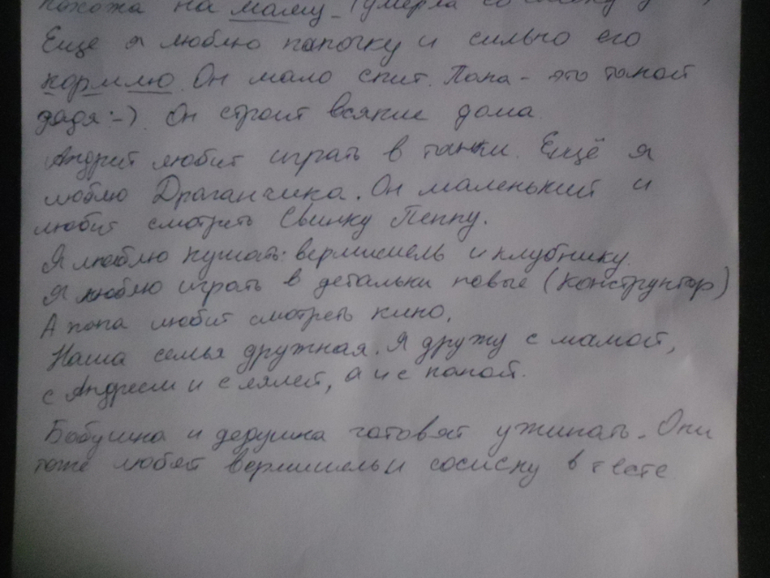 похожа на маму (умерла со
Еще я люблю папочку и сильно его
кормлю. Он мало спит. Папа - это такой
дядя :-) Он строит всякие дома.
Андрей любит играть в танки. Ещё я
люблю Драганчика. Он маленький и
любит смотреть Свинку Пеппу.
Я люблю кушать: вермишель и клубнику.
Я люблю играть в детальки новые (конструктор)
А папа любит смотреть кино.
Наша семья дружная. Я дружу с мамой,
с Андреем и с лялей, а и с папой.
Бабушка и дедушка готовят ужинать. Они
тоже любят вермишель и сосиску в тесте